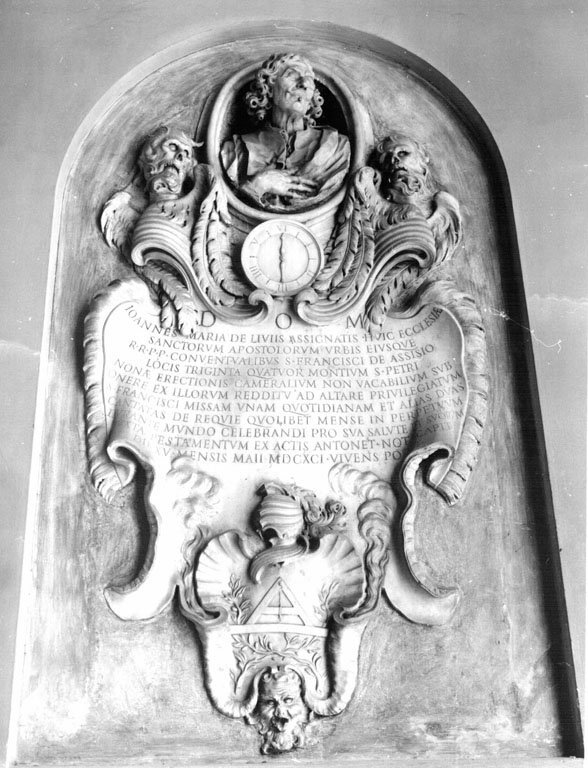 D O M
IOANNES MARIA DE LIVIIS ASSIGNATIS HVIC ECCLESIÆ
SANCTORVM APOSTOLORVM VRBIS EIVSQVE
R·R·P·P·CONVENTVALIBVS S·FRANCISCI DE ASSISIO
LOCIS TRIGINTA QVATVOR MONTIVM S·PETRI
NONÆ ERECTIONIS CAMERALIVM NON VACABILIVM SVB
ONERE EX ILLORVM REDDITV AD ALTARE PRIVILEGIATVM
S·FRANCISCI MISSAM VNAM QVOTIDIANAM ET ALIAS DVAS
DE REQVIE QVOLIBET MENSE IN PERPETVVM
MVNDO CELEBRANDI PRO SVA SALVTE
TESTAMENTVM EX ACTIS ANTONET·NOT·
MENSIS MAII MDCXCI·VIVENS